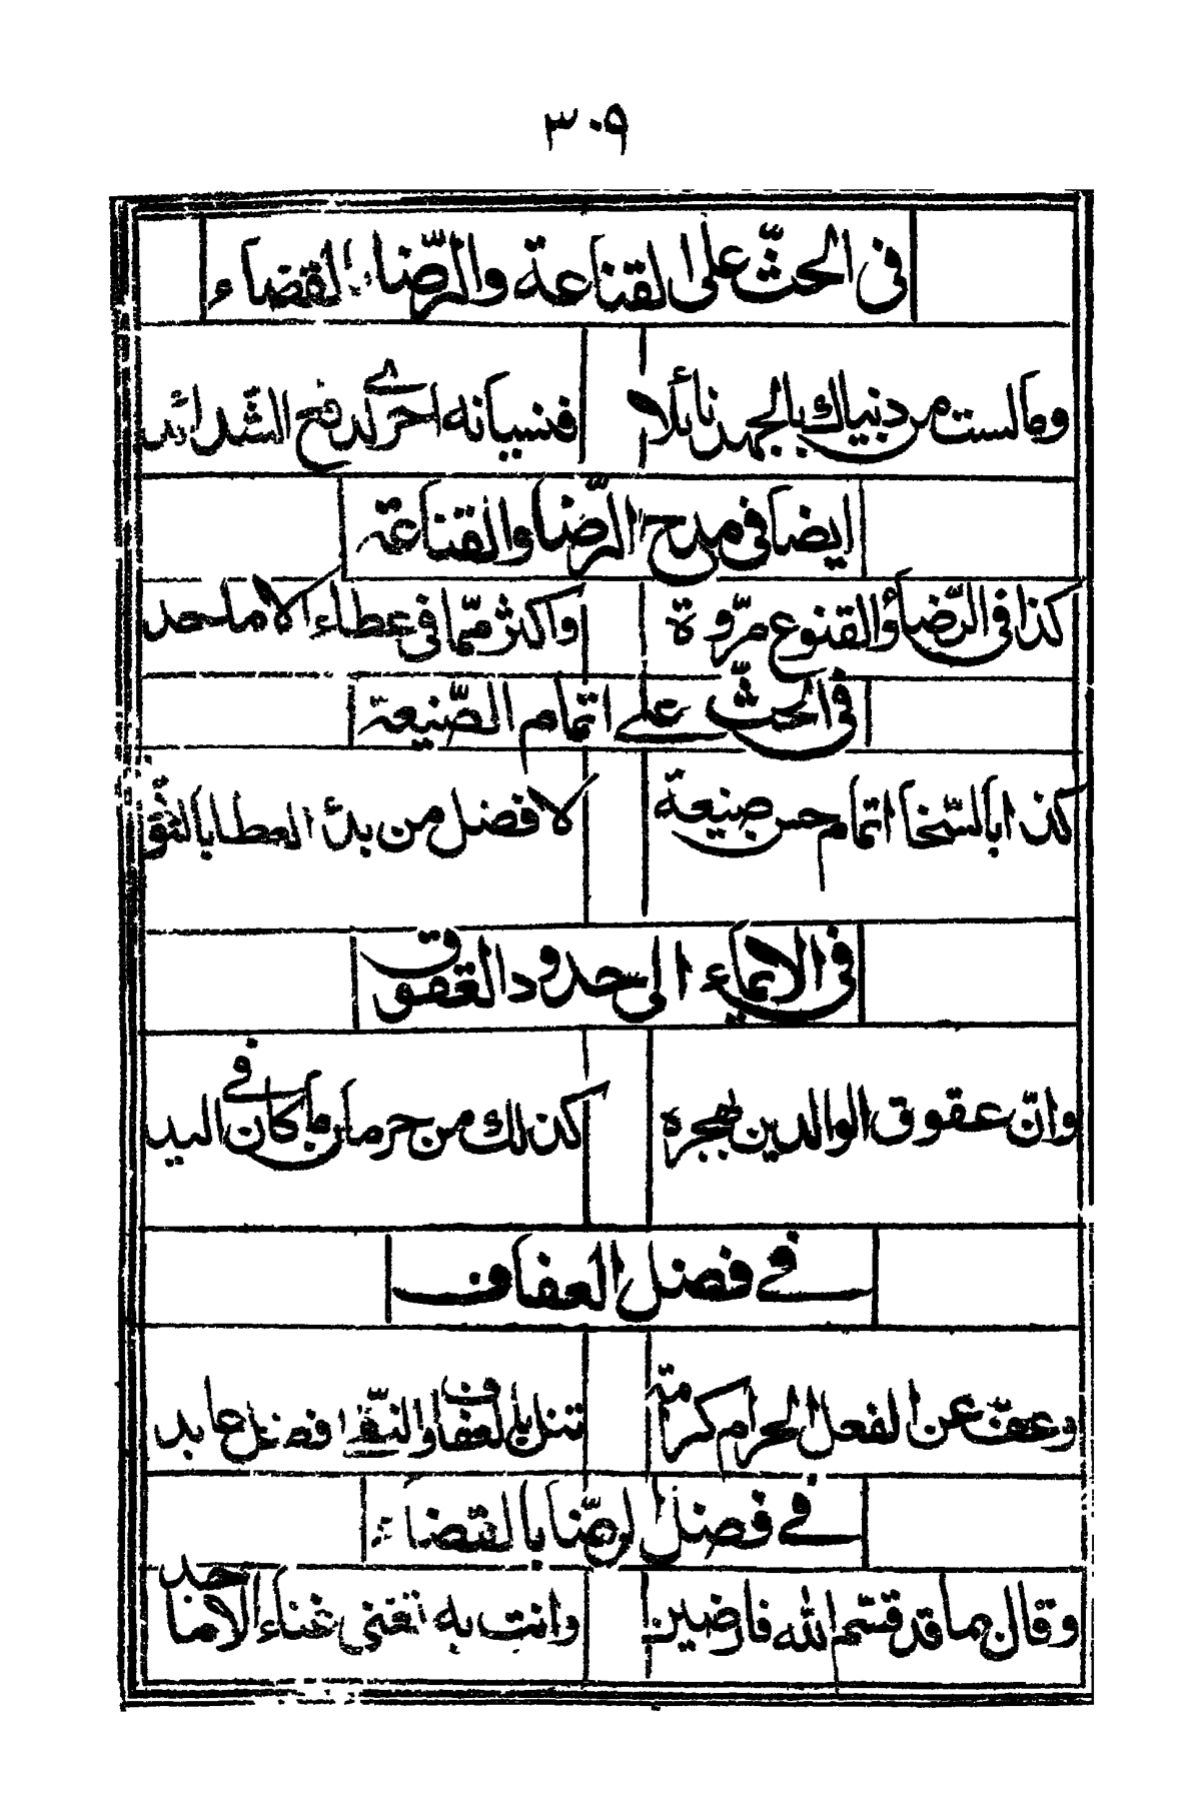 ٣٠٩
فى الحثّ على القناعة والرّضاء بالقضاء
وما لست من دنياك بالجهد نائلا فنسيانه احرى لدفع الشّدائد
ايضا فى مدح الرّضا والقناعة
كذا فى الرّضا والقنوع مرّوة واكثر ممّا فى عطاء الاماجد
فى الحثّ على اتمام الصّنيعة
كذا بالسّخا اتمام حسن صنيعة لافضل من بدئ العطا بالتّؤ
فى الايماء الى حدود العقوق
وانّ عقوق الوالدين بهجره كذلك من حرمان ما كان فى اليد
فى فضل العفاف
وعفّ عن الفعل الحرام كرامة تنل بالعفاف والتّقا فضل عابد
فى فضل الرضّا بالقضاء
وقال بما قد قسّم الله فارضين وانت به تغنى غناء الاماجد